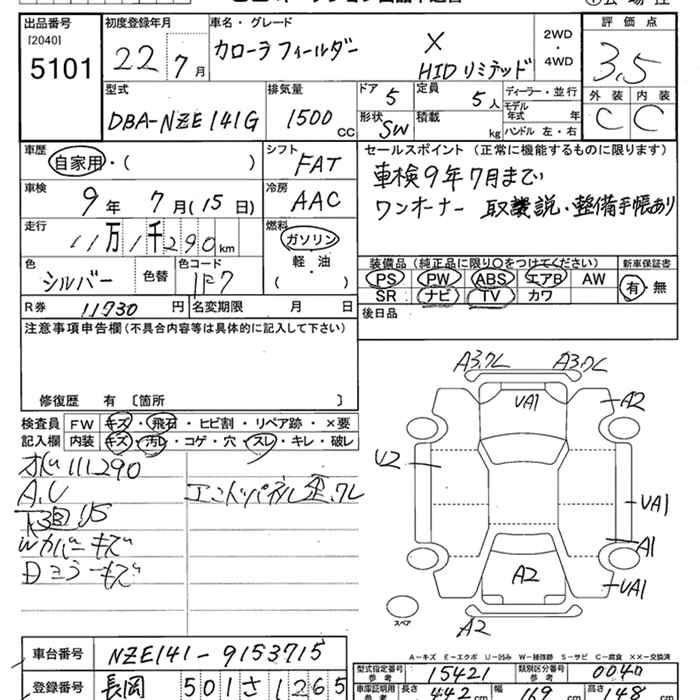 出品番号
[2040]
5101
初度登録年月
22年7月
車名・グレード
カローラフィールダー X
HIDリミテッド
2WD
・
4WD
評価点
3.5
外装 内装
C C
型式
DBA-NZE141G
排気量
1500 CC
ドア 5
定員 5人
形状 SW
積載 kg
ディーラー・並行
モデル年式 年
ハンドル 左・右
車歴
自家用・( )
シフト
FAT
車検
9年7月(15日)
冷房
AAC
走行
11万1千290km
燃料
ガソリン
軽・油
( )
色
シルバー
色替
色コード
1F7
R券 11730円
名変期限 月 日
セールスポイント(正常に機能するものに限ります)
車検9年7月まで
ワンオーナー 取説・整備手帳あり
装備品(純正品に限り○をつけてください)
PS PW ABS エアB AW
SR ナビ TV カワ
新車保証書
有・無
後日品
注意事項申告欄(不具合内容等は具体的に記入して下さい)
修復歴 有〔箇所 〕
検査員
記入欄
FW キズ・飛石・ヒビ割・リペア跡・×要
内装 キズ・汚レ・コゲ・穴・スレ・キレ・破レ
111290
A.U
下回りS
Wカバーキズ
Dミラーキズ
エンドパネル歪.クレ
A3.クレ A3.クレ
VA1
A2
U2
VA1
A1
A2
VA1
A2
スペア
A-キズ E-エクボ U-凹み W-補修跡 S-サビ C-腐食 ××-交換済
車台番号 NZE141-9153715
登録番号 長岡 501 さ 1265
型式指定番号
参考
15421
類別区分番号
参考
0040
車庫証明用
参考
長さ 442cm
幅 169cm
高さ 148cm